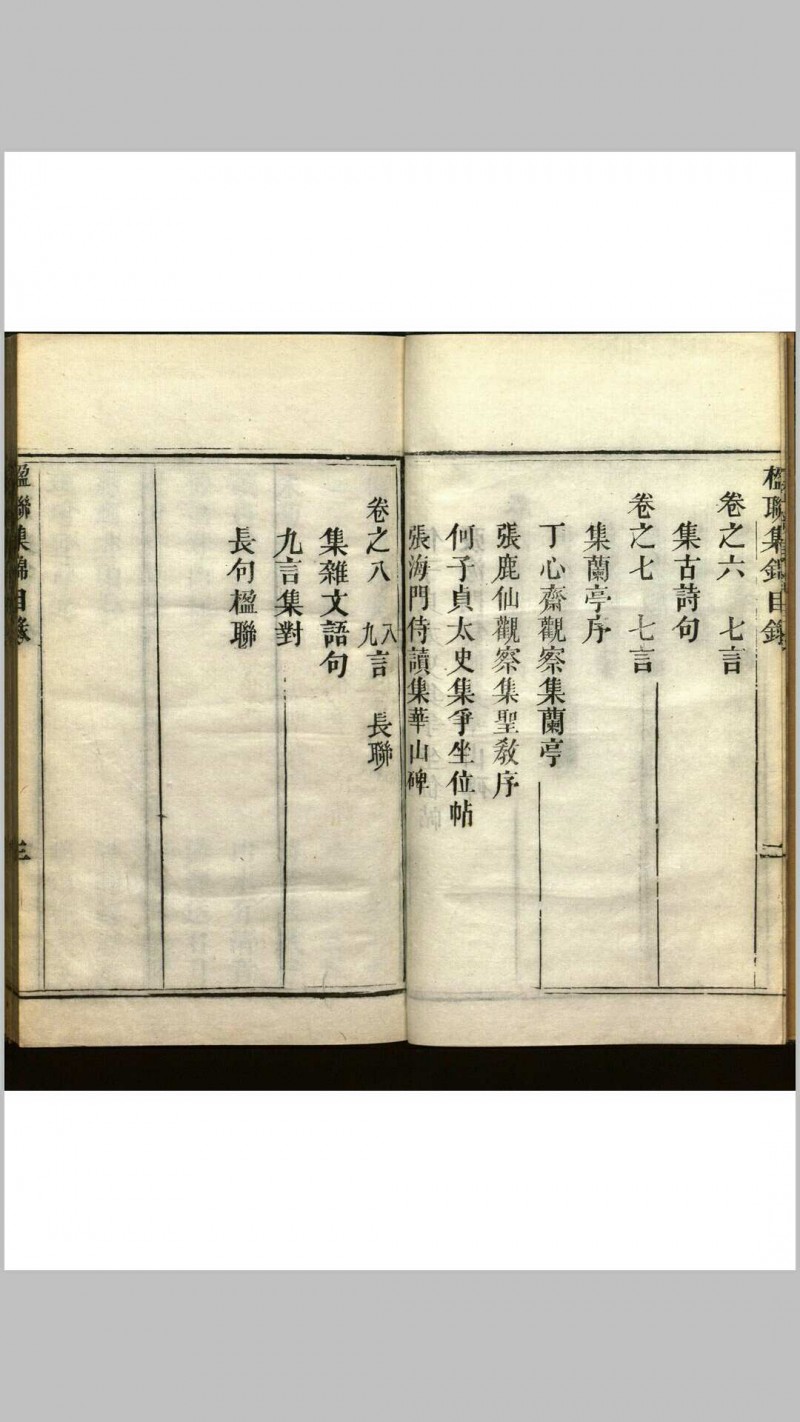 楹聯集錦目錄
二
卷之六 七言
集古詩句
卷之七 七言
集蘭亭序
丁心齋觀察集蘭亭
張鹿仙觀察集聖敎序
何子貞太史集爭坐位帖
張海門侍讀集華山碑
卷之八 八九言 長聯
集雜文語句
九言集對
長句楹聯
楹聯集錦目錄
三